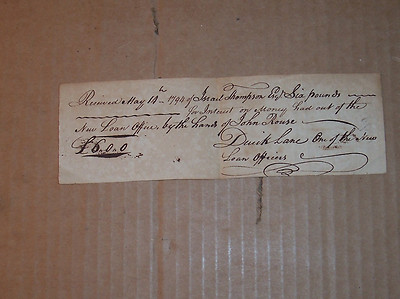 Received May 14th 1794 of Israel Thompson Esqr Six pounds
for Interest on Money had out of the
New Loan Office by the hands of John Rouse
£6..0..0 Lane One of the New
Loan Officers